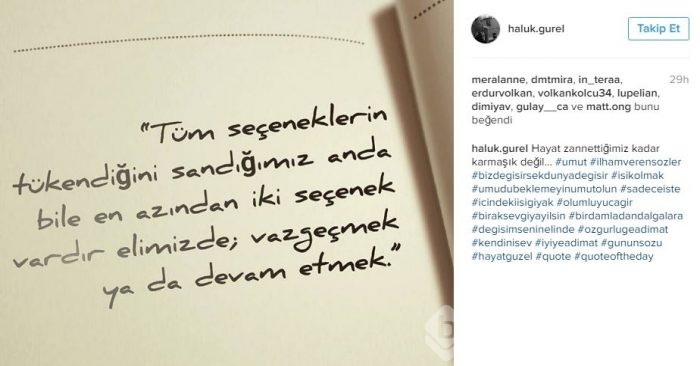 "Tüm seçeneklerin
tükendiğini sandığımız anda
bile en azından iki seçenek
vardır elimizde; vazgeçmek
ya da devam etmek."
haluk.gurel
Takip Et
meralanne, dmtmira, in_teraa,
29h
erdurvolkan, volkankolcu34, lupelian,
dimiyav, gulay__ca ve matt.ong bunu
beğendi
haluk.gurel Hayat zannettiğimiz kadar
karmaşık değil... #umut #ilhamverensozler
#bizdegisirsekdunyadegisir #isikolmak
#umudubeklemeyinumutolun #sadeceiste
#icindekiisigiyak #olumluyucagir
#biraksevgiyayilsin #birdamladandalgalara
#degisimseninelinde #ozgurlugeadimat
#kendinisev #iyiyeadimat #gununsozu
#hayatguzel #quote #quoteoftheday